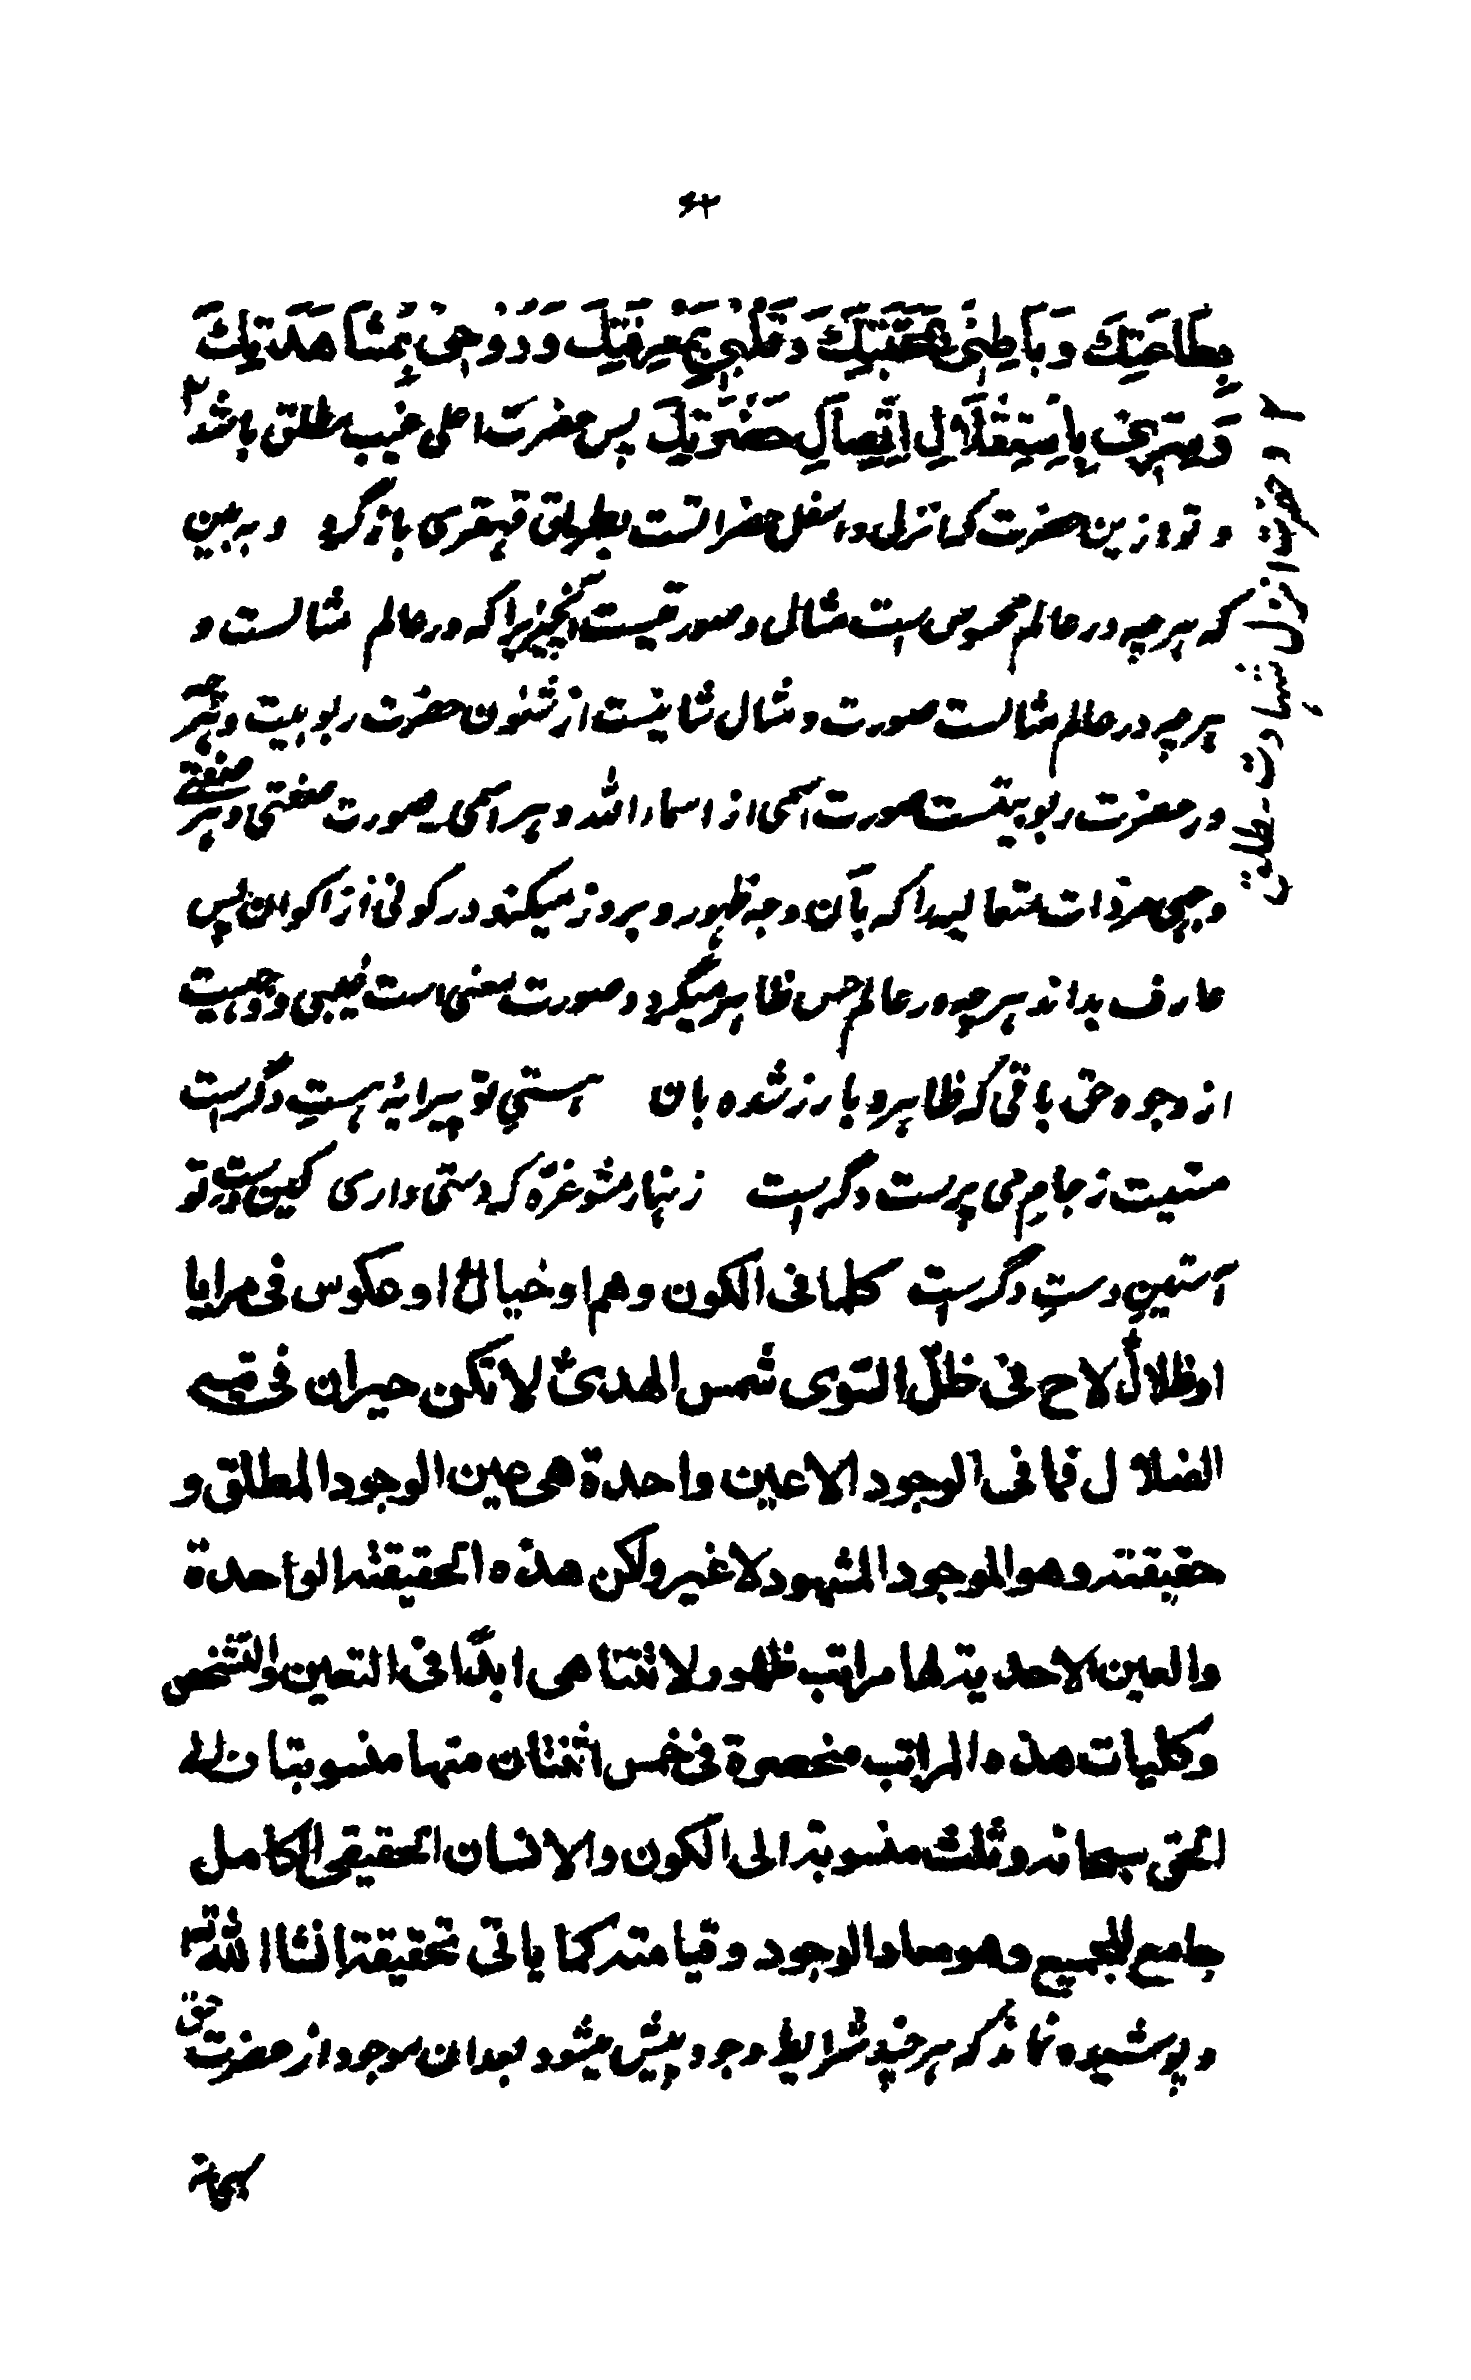 ۶۲
بِطَاعَتِكَ وَبَاطِنِی بِمَحَبَّتِكَ وَقَلْبِی بِمَعْرِفَتِكَ وَرُوْحِیْ بِمُشَاهَدَتِكَ
وَسِرِّیْ بِاِسْتِقْلَالِ اِتِّصَالِ حَضْرَتِكَ پس حضرت اعلی غیب مطلق باشد ۲
و تو ازین حضرت که انزل و اسفل حضراتست بطریق قهقری بازگرد و به بین
که هرچه در عالم محسوس است مثال و صورتیست آنچیز را که در عالم مثالست و
هرچه در عالم مثالست صورت و مثال شانیست از شئون حضرت ربوبیت و هرچه
در حضرت ربوبیتست صورت اسمی از اسماء الله و هر اسمی صورت صفتی و هر صفتے
وجهی مر ذات متعالیه را که بآن وجه ظهور و بروز میکند در کونی از اکوان پس
عارف بداند هرچه در عالم حس ظاهر میگردد صورت معنی است غیبی و وجهیست
از وجوه حق باقی که ظاهر و بارز شده بان هستیِ تو پیرایهٔ هستِ دگرست
مستیت ز جامِ می پرست دگرست زنهار مشو غرّه که دستی داری کین دست تو
آستینِ دستِ دگرست کلما فی الکون وهم او خیال او عکوس فی مرایا
او ظلال لاح فی ظلّ السّوی شمس الهدیٰ لا تکن حیران فی تیه
الضلال فما فی الوجود الا عین واحدة هی عین الوجود المطلق و
حقیقته وهو الموجود المشهود لا غیر ولکن هذه الحقیقة الواحدة
والعین الاحدیة لها مراتب ظهور لا تتناهی ابدًا فی التعین والتشخص
وکلیات هذه المراتب منحصرة فی خمس اثنتان منها منسوبتان الی
الحق سبحانه وثلث منسوبة الی الکون والانسان الحقیقی الکامل
جامع للجمیع وهو معاد الوجود وقیامته کما یاتی تحقیقة انشا الله تع
و پوشیده نماند که هرچند شرایط وجود بیش میشود بعد ان موجود از حضرت حق
سبحانه
۲ و حضرت انزل شهادت مطلق